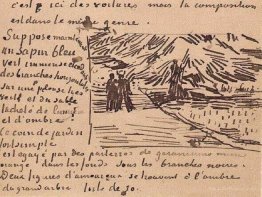 c'est ici des voilures mais la composition
est dans le même genre.
Suppose maintenant
un Sapin bleu
vert immense
des branches horizontales
sur une pelouse très
verte et du sable
tacheté de lumière
et d'ombre
Ce coin de jardin
fort simple
est égayé par des parterres de géraniums mine
orange dans les fonds sous les branches noires.
Deux figures d'amoureux se trouvent à l'ombre
du grand arbre toile de 30.